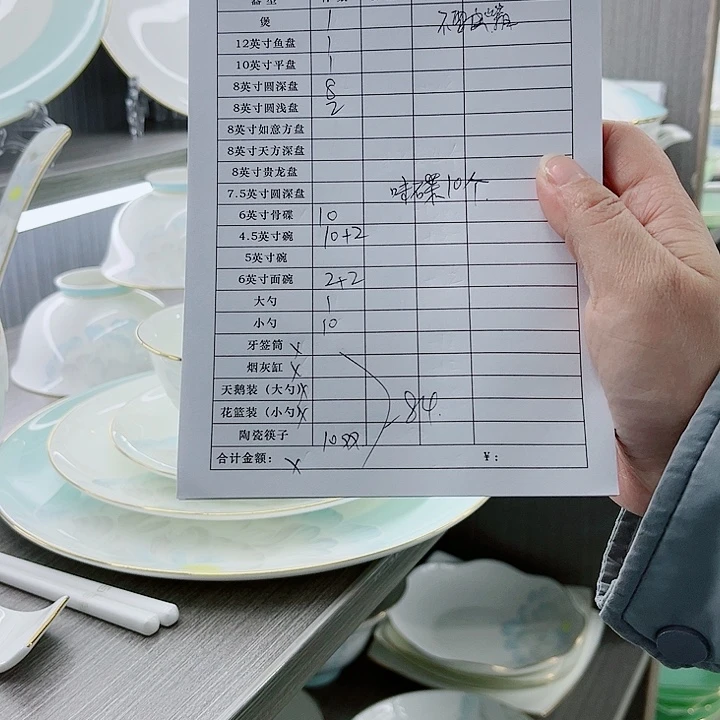 煲 1
12英寸鱼盘 1
10英寸平盘 1
8英寸圆深盘 8
8英寸圆浅盘 2
8英寸如意方盘
8英寸天方深盘
8英寸贵龙盘
7.5英寸圆深盘 味碟10个
6英寸骨碟 10
4.5英寸碗 10+2
5英寸碗
6英寸面碗 2+2
大勺 1
小勺 10
牙签筒 x
烟灰缸 x
天鹅装（大勺） x
花篮装（小勺） x 84.
陶瓷筷子 10双
合计金额： x ￥：